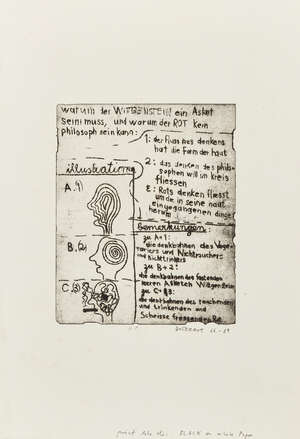 warum der WITTGENSTEIN ein Asket
sein muss, und warum der ROT kein
philosoph sein kann:
1: der fluss des denkens
hat die form der haut
2: das denken des philo-
sophen will im kreis
fliessen
3: Rots denken fliesst
um die in seine haut
eingegangenen dinge
herum
illustrations
A.1)
B.(2)
C.(3)
Bemerkungen:
zu A+1:
die denkbahnen des Vege-
tariers und Nichtrauchers
und Nichttrinkers
zu B+2:
die denkbahnen des fastenden
leeren Asketen Wittgenstein
zu C+3:
die denkbahnen des rauchenden
und trinkenden und
Scheisse fressenden Ro
66-69
print like this: BLACK on white Paper